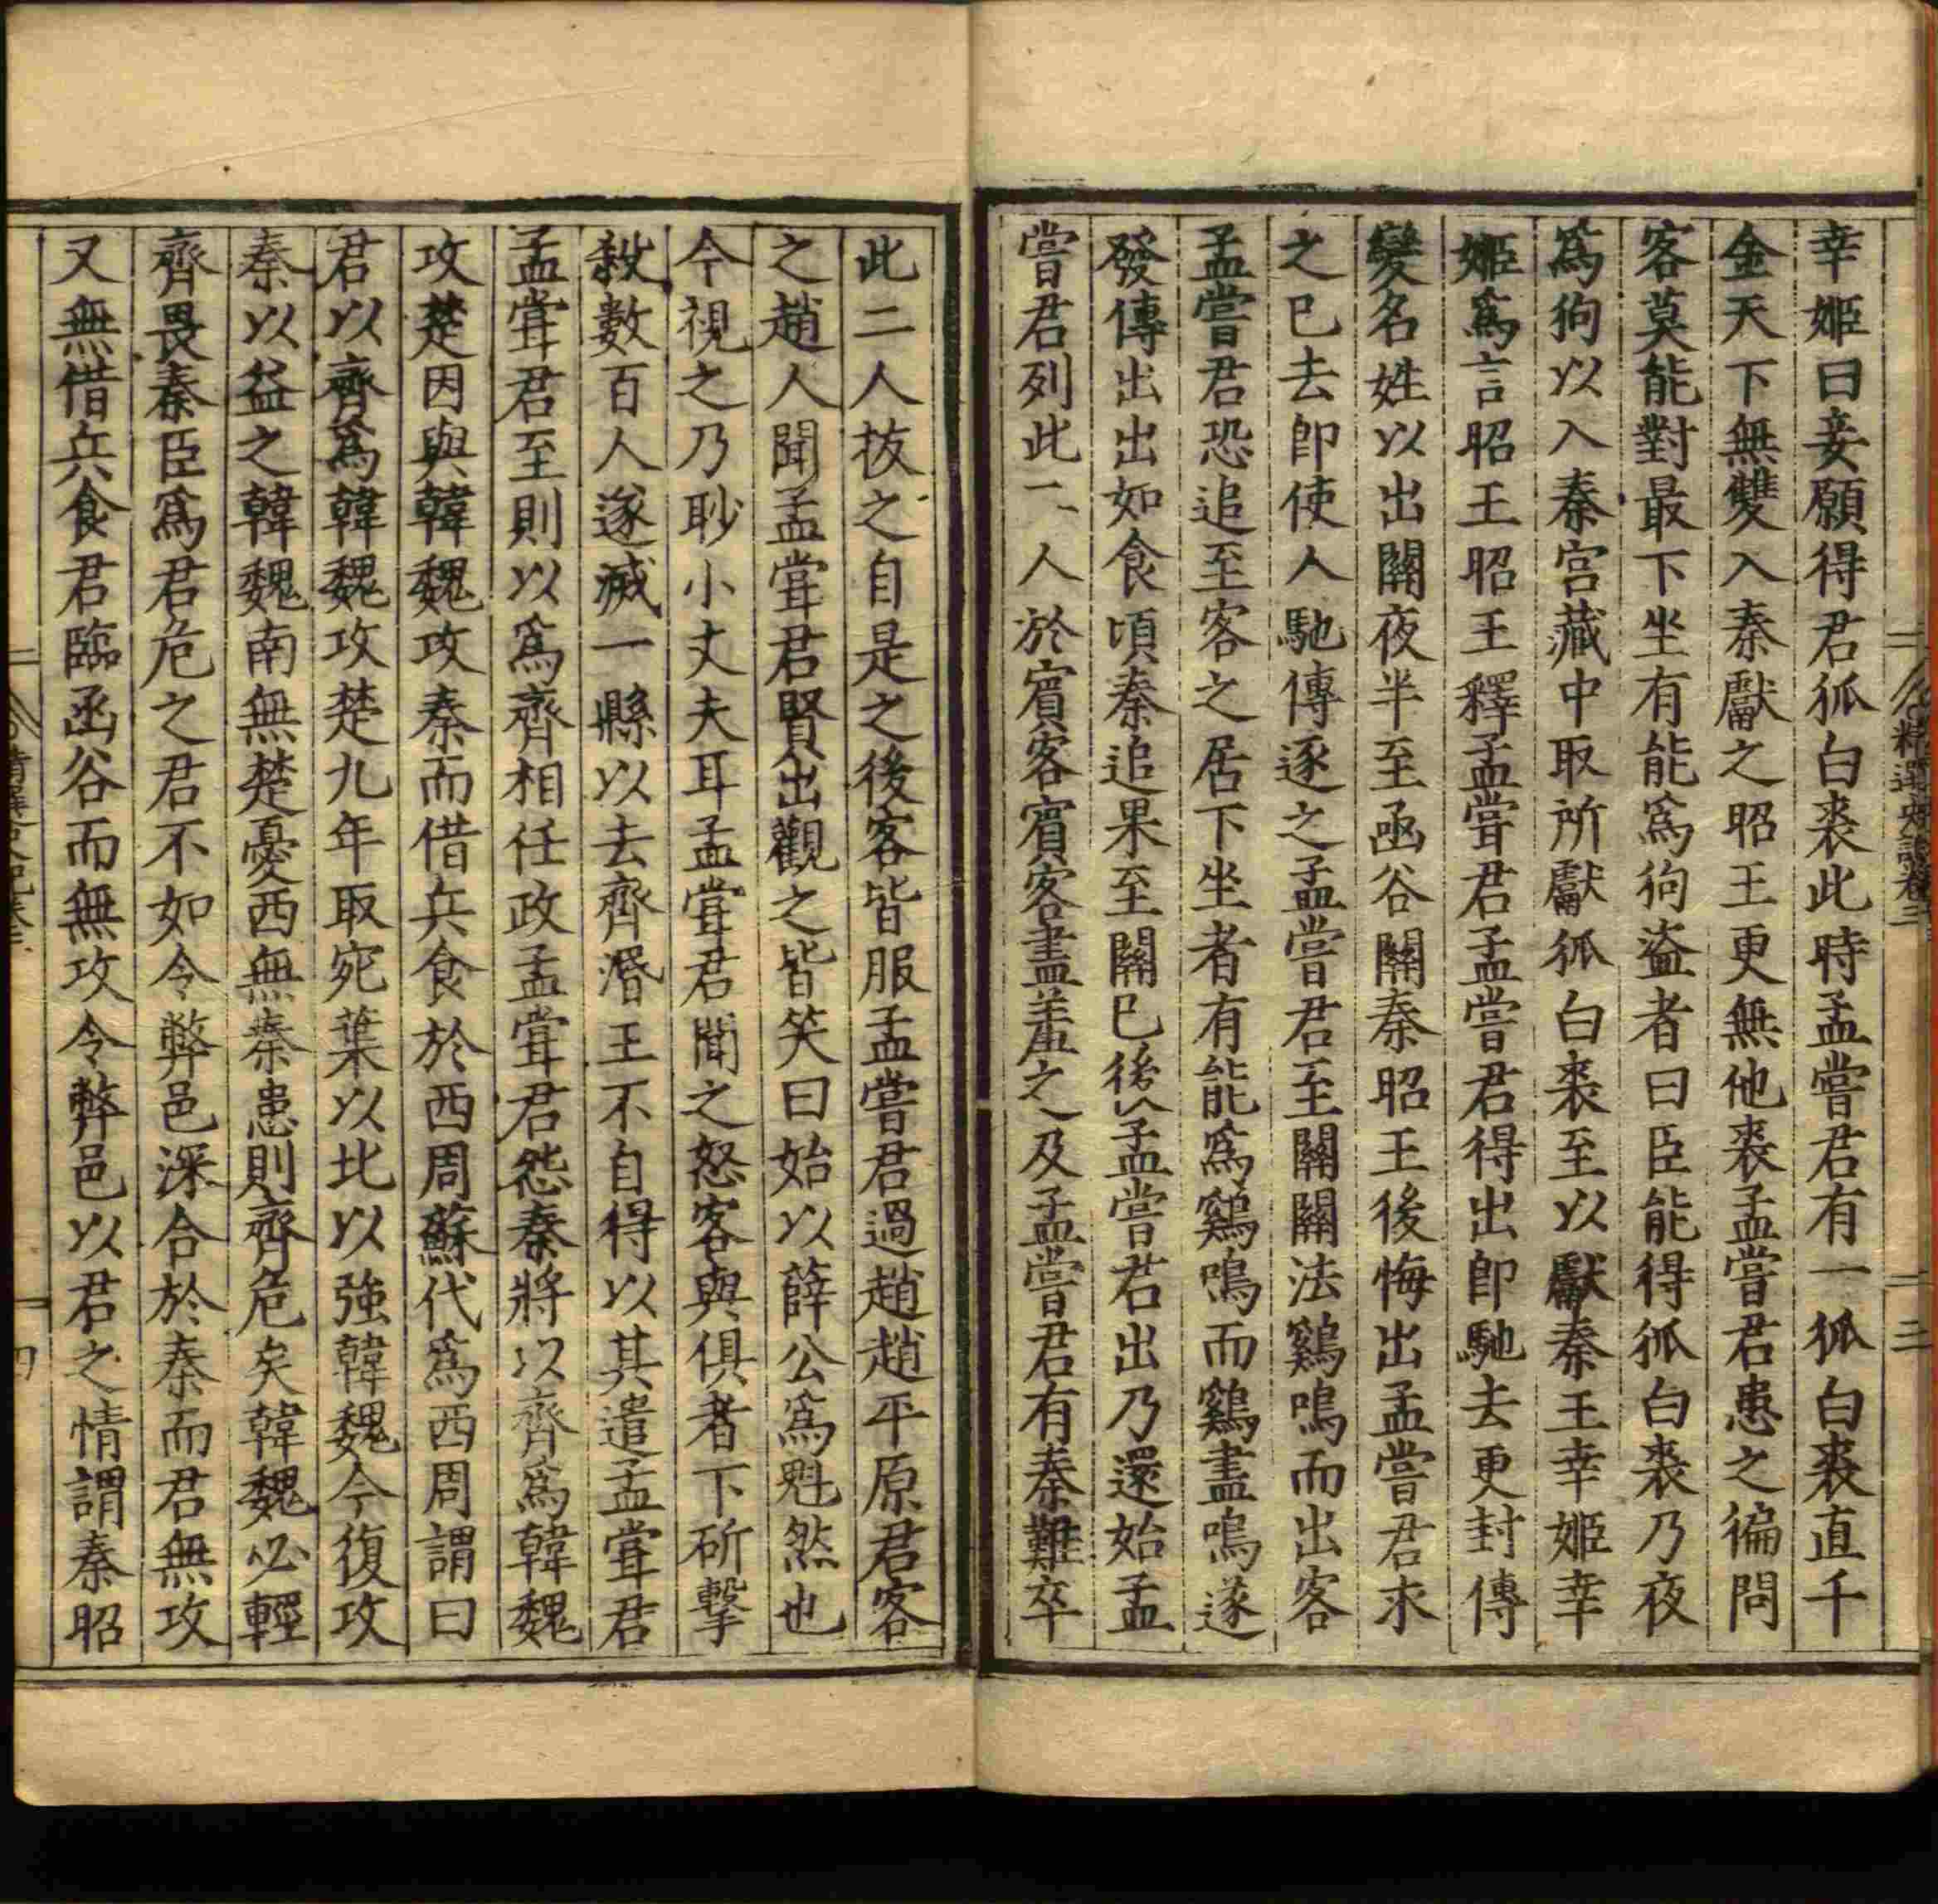 幸姬曰妾願得君狐白裘此時孟嘗君有一狐白裘直千
金天下無雙入秦獻之昭王更無他裘孟嘗君患之徧問
客莫能對最下坐有能爲狗盜者曰臣能得狐白裘乃夜
爲狗以入秦宮藏中取所獻狐白裘至以獻秦王幸姬幸
姬爲言昭王昭王釋孟嘗君孟嘗君得出卽馳去更封傳
變名姓以出關夜半至函谷關秦昭王後悔出孟嘗君求
之已去卽使人馳傳逐之孟嘗君至關關法鷄鳴而出客
孟嘗君恐追至客之居下坐者有能爲鷄鳴而鷄盡鳴遂
發傳出出如食頃秦追果至關已後孟嘗君出乃還始孟
嘗君列此二人於賓客賓客盡羞之及孟嘗君有秦難卒
此二人拔之自是之後客皆服孟嘗君過趙趙平原君客
之趙人聞孟嘗君賢出觀之皆笑曰始以薛公爲魁然也
今視之乃眇小丈夫耳孟嘗君聞之怒客與俱者下斫擊
殺數百人遂滅一縣以去齊湣王不自得以其遣孟嘗君
孟嘗君至則以爲齊相任政孟嘗君怨秦將以齊爲韓魏
攻楚因與韓魏攻秦而借兵食於西周蘇代爲西周謂曰
君以齊爲韓魏攻楚九年取宛葉以北以強韓魏今復攻
秦以益之韓魏南無楚憂西無秦患則齊危矣韓魏必輕
齊畏秦臣爲君危之君不如令弊邑深合於秦而君無攻
又無借兵食君臨函谷而無攻令弊邑以君之情謂秦昭